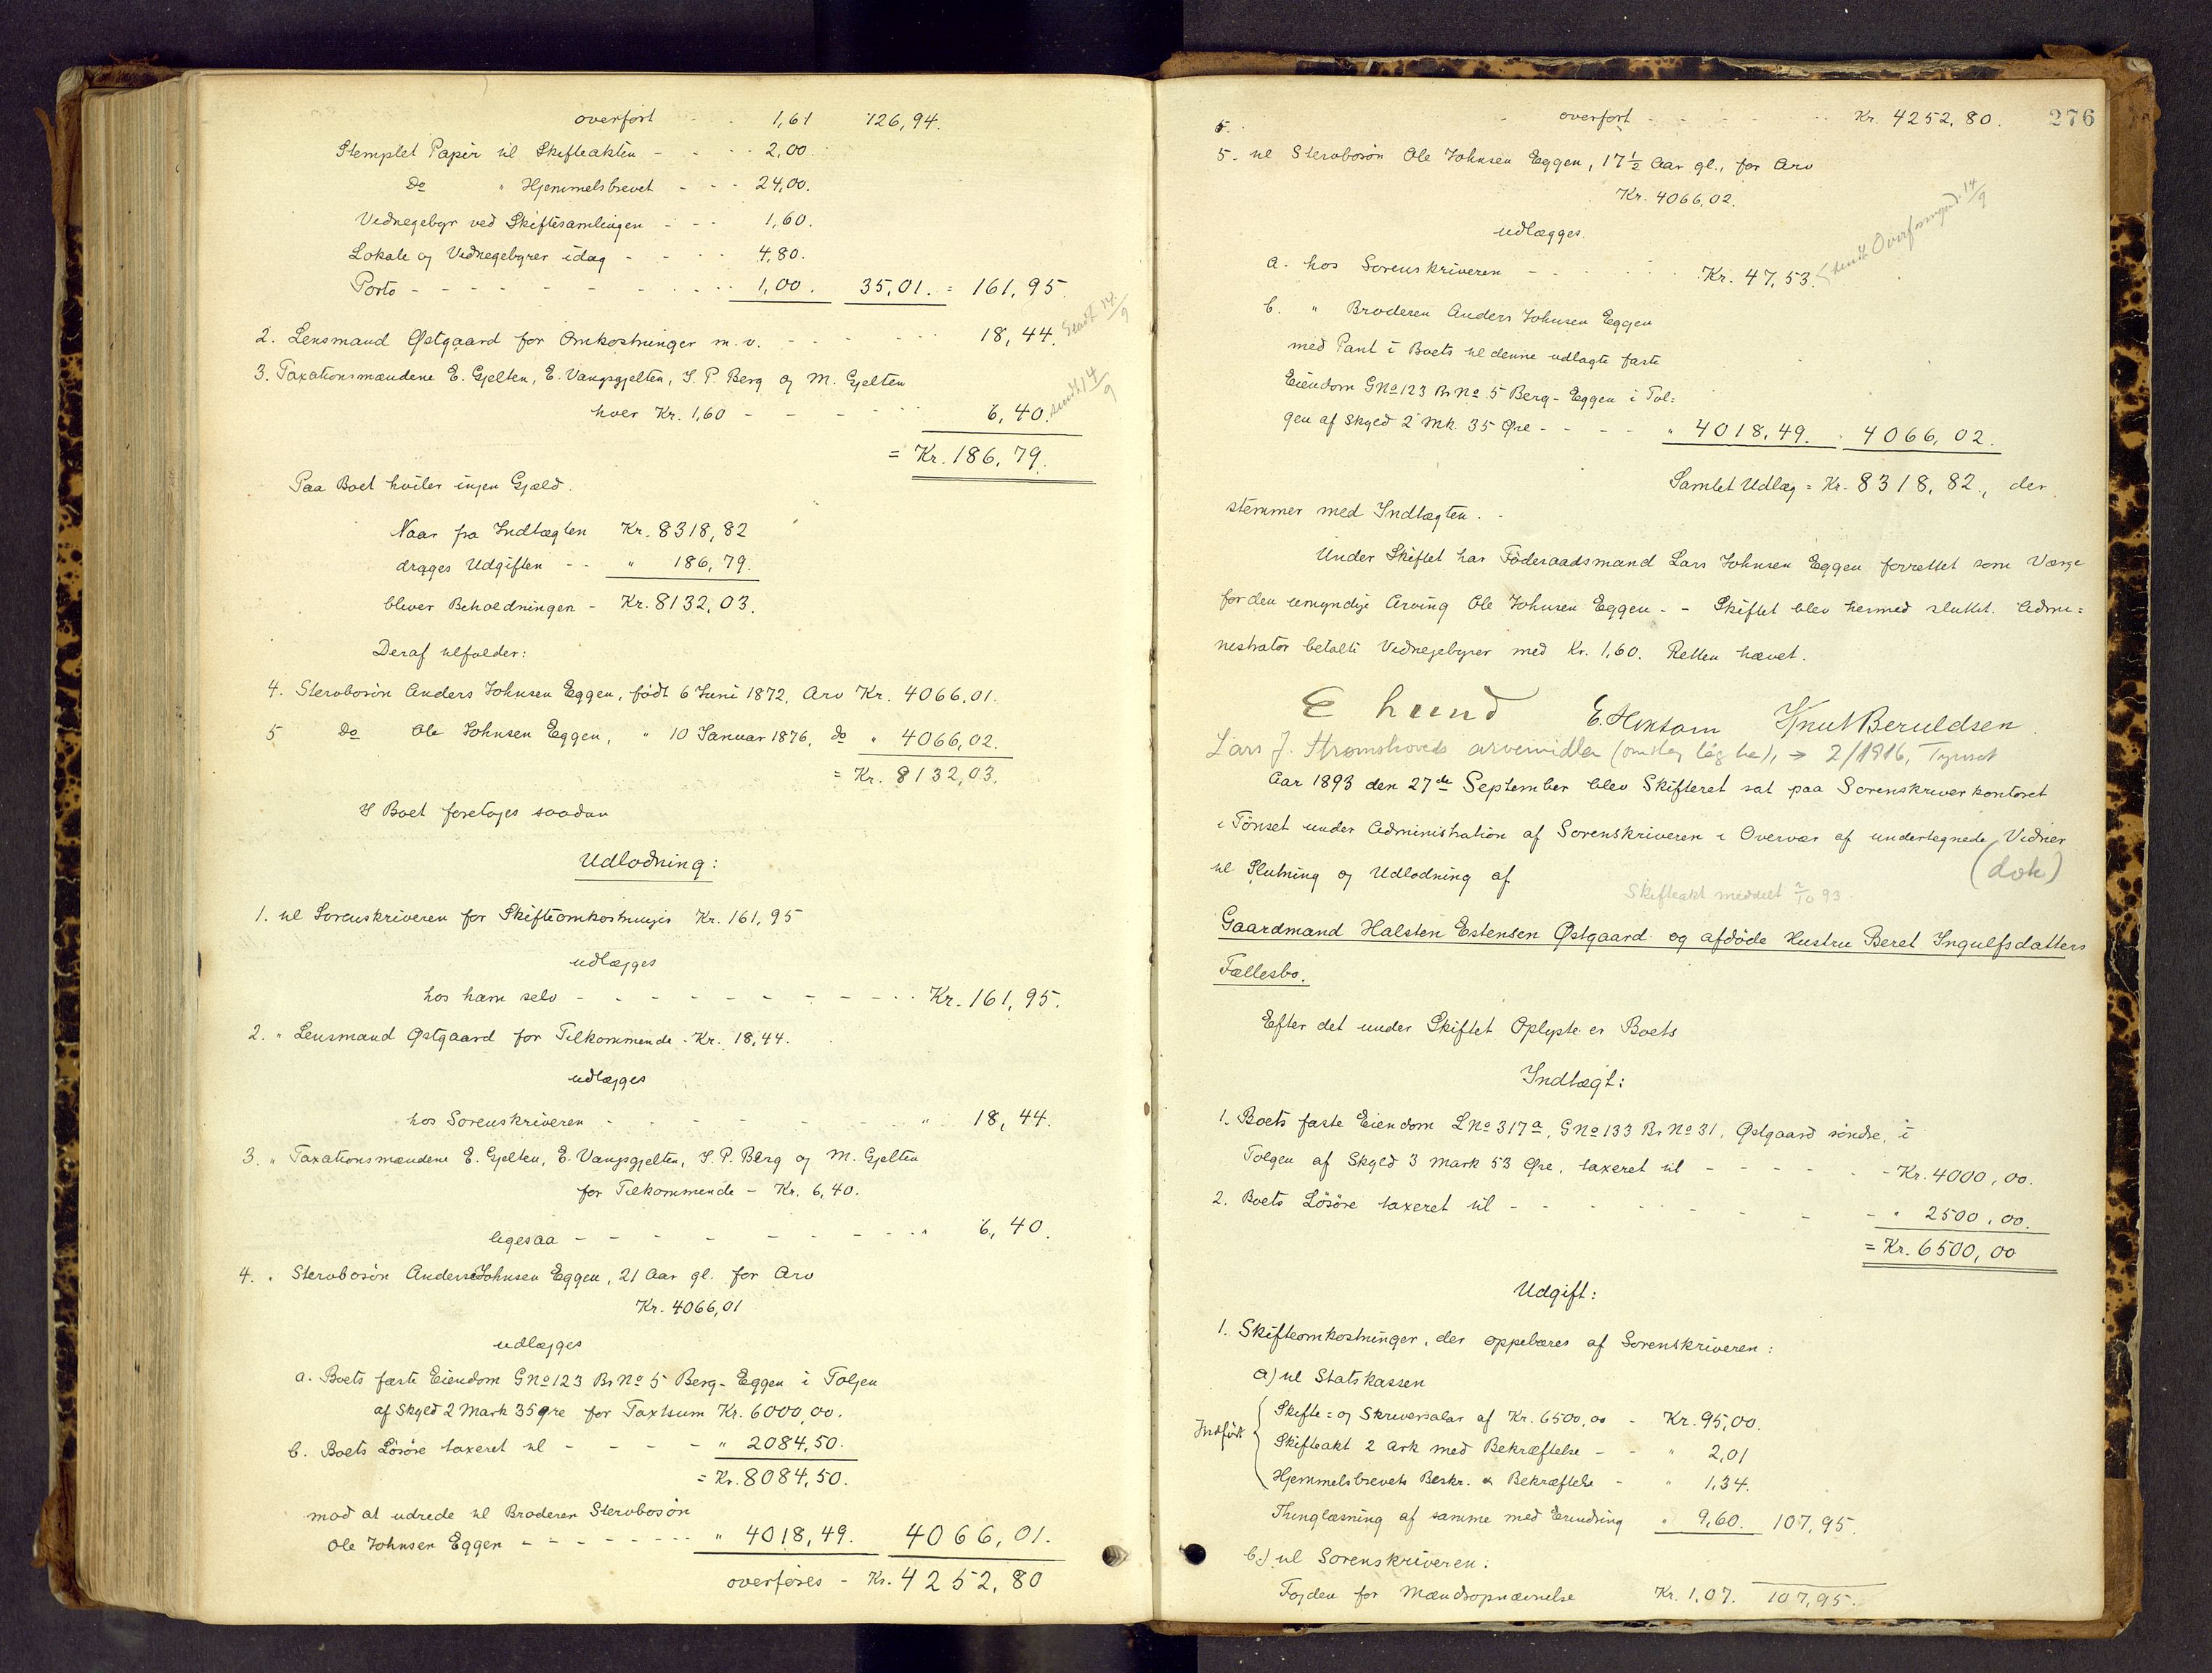 overført - - 1,61 126,94.
Stemplet Papir til Skifteakten - - - 2,00.
Do " Hjemmelsbrevet - - - 24,00.
Vidnegebyr ved Skiftesamlingen - - - 1,60.
Lokale og Vidnegebyrer idag - - - 4,80.
Porto - - - - - - 1,00. 35,01. = 161,95.
2. Lensmand Østgaard for Omkostninger m. v. - - - - 18,44. Sendt 14/9
3. Taxationsmændene E. Gjelten, E. Vangsgjelten, I. P. Berg og M. Gjelten
hver Kr. 1,60 - - - - 6,40. sendt 14/9
= Kr. 186,79.
Paa Boet hviler ingen Gjæld.
Naar fra Indtægten Kr. 8318,82
drages Udgiften - - " 186,79.
bliver Beholdningen - Kr. 8132,03.
Deraf tilfalder:
4. Stervbosøn Anders Johnsen Eggen, født 6 Juni 1872, Arv Kr. 4066,01.
5 Do Ole Johnsen Eggen, " 10 Januar 1876, do " 4066,02.
= Kr. 8132,03.
I Boet foretages saadan
Udlodning:
1. til Sorenskriveren for Skifteomkostninger Kr. 161,95
udlægges
hos ham selv - - - - - - - - Kr. 161,95.
2. " Lensmand Østgaard for Tilkommende - Kr. 18,44.
udlægges
hos Sorenskriveren - - - - - - " 18,44.
3. " Taxationsmændene E. Gjelten, E. Vangsgjelten, I. P. Berg og M. Gjelten
for Tilkommende - Kr. 6,40.
ligesaa - - - - - - - - " 6,40.
4. " Stervbosøn Anders Johnsen Eggen, 21 Aar gl. for Arv
Kr. 4066,01
udlægges
a. Boets faste Eiendom GNo 123 BrNo 5 Berg-Eggen i Tolgen
af Skyld 2 Mark 35 Øre for Taxtsum Kr. 6000,00.
b. Boets Løsøre taxeret til - - - - " 2084,50.
= Kr. 8084,50.
mod at udrede til Broderen Stervbosøn
Ole Johnsen Eggen - - - - - - " 4018,49. 4066,01.
overføres - Kr. 4252,80
276
5. overført - - - - - Kr. 4252,80.
5. til Stervbosøn Ole Johnsen Eggen, 17½ Aar gl., for Arv
Kr. 4066,02.
udlægges
a. hos Sorenskriveren - - - - - Kr. 47,53. sendt 14/9
b. " Broderen Anders Johnsen Eggen
med Pant i Boets til denne udlagte faste
Eiendom GNo 123 BrNo 5 Berg-Eggen i Tol=
gen af Skyld 2 Mk. 35 Øre - - - - " 4018,49. 4066,02.
Samlet Udlæg = Kr. 8318,82., der
stemmer med Indtægten. -
Under Skiftet har Føderaadsmand Lars Johnsen Eggen forrettet som Værge
for den umyndige Arving Ole Johnsen Eggen - - Skiftet blev hermed sluttet. Admi=
nistrator betalte Vidnegebyrer med Kr. 1,60. Retten hævet.
E Lund Knut Beruldsen
Lars J. Strømshoveds → 2/1816, Tynset
Aar 1893 den 27de September blev Skifteret sat paa Sorenskriverkontoret
i Tønset under Administration af Sorenskriveren i Overvær af undertegnede Vidner
til Slutning og Udlodning af
(dok)
Skifteakt meddelt 2/10 93.
Gaardmand Halsten Estensen Østgaard og afdøde Hustru Beret Ingulfsdatters
Fællesbo.
Efter det under Skiftet Oplyste er Boets
Indtægt:
1. Boets faste Eiendom LNo 317a, GNo 133 BrNo 31, Østgaard søndre, i
Tolgen af Skyld 3 Mark 53 Øre, taxeret til - - - - - Kr. 4000,00.
2. Boets Løsøre taxeret til - - - - - - " 2500,00.
= Kr. 6500,00
Udgift:
1. Skifteomkostninger, der oppebæres af Sorenskriveren:
a) til Statskassen
Indført
Skifte= og Skriversalær af Kr. 6500,00 - Kr. 95,00.
Skifteakt 2 Ark med Bekræftelse - - " 2,01
Hjemmelsbrevets Beskr. & Bekræftelse - " 1,34.
Thinglæsning af samme med Erindring " 9,60. 107,95.
b.) til Sorenskriveren:
Fogden for Mændsopnævnelse Kr. 1,07. 107,95.